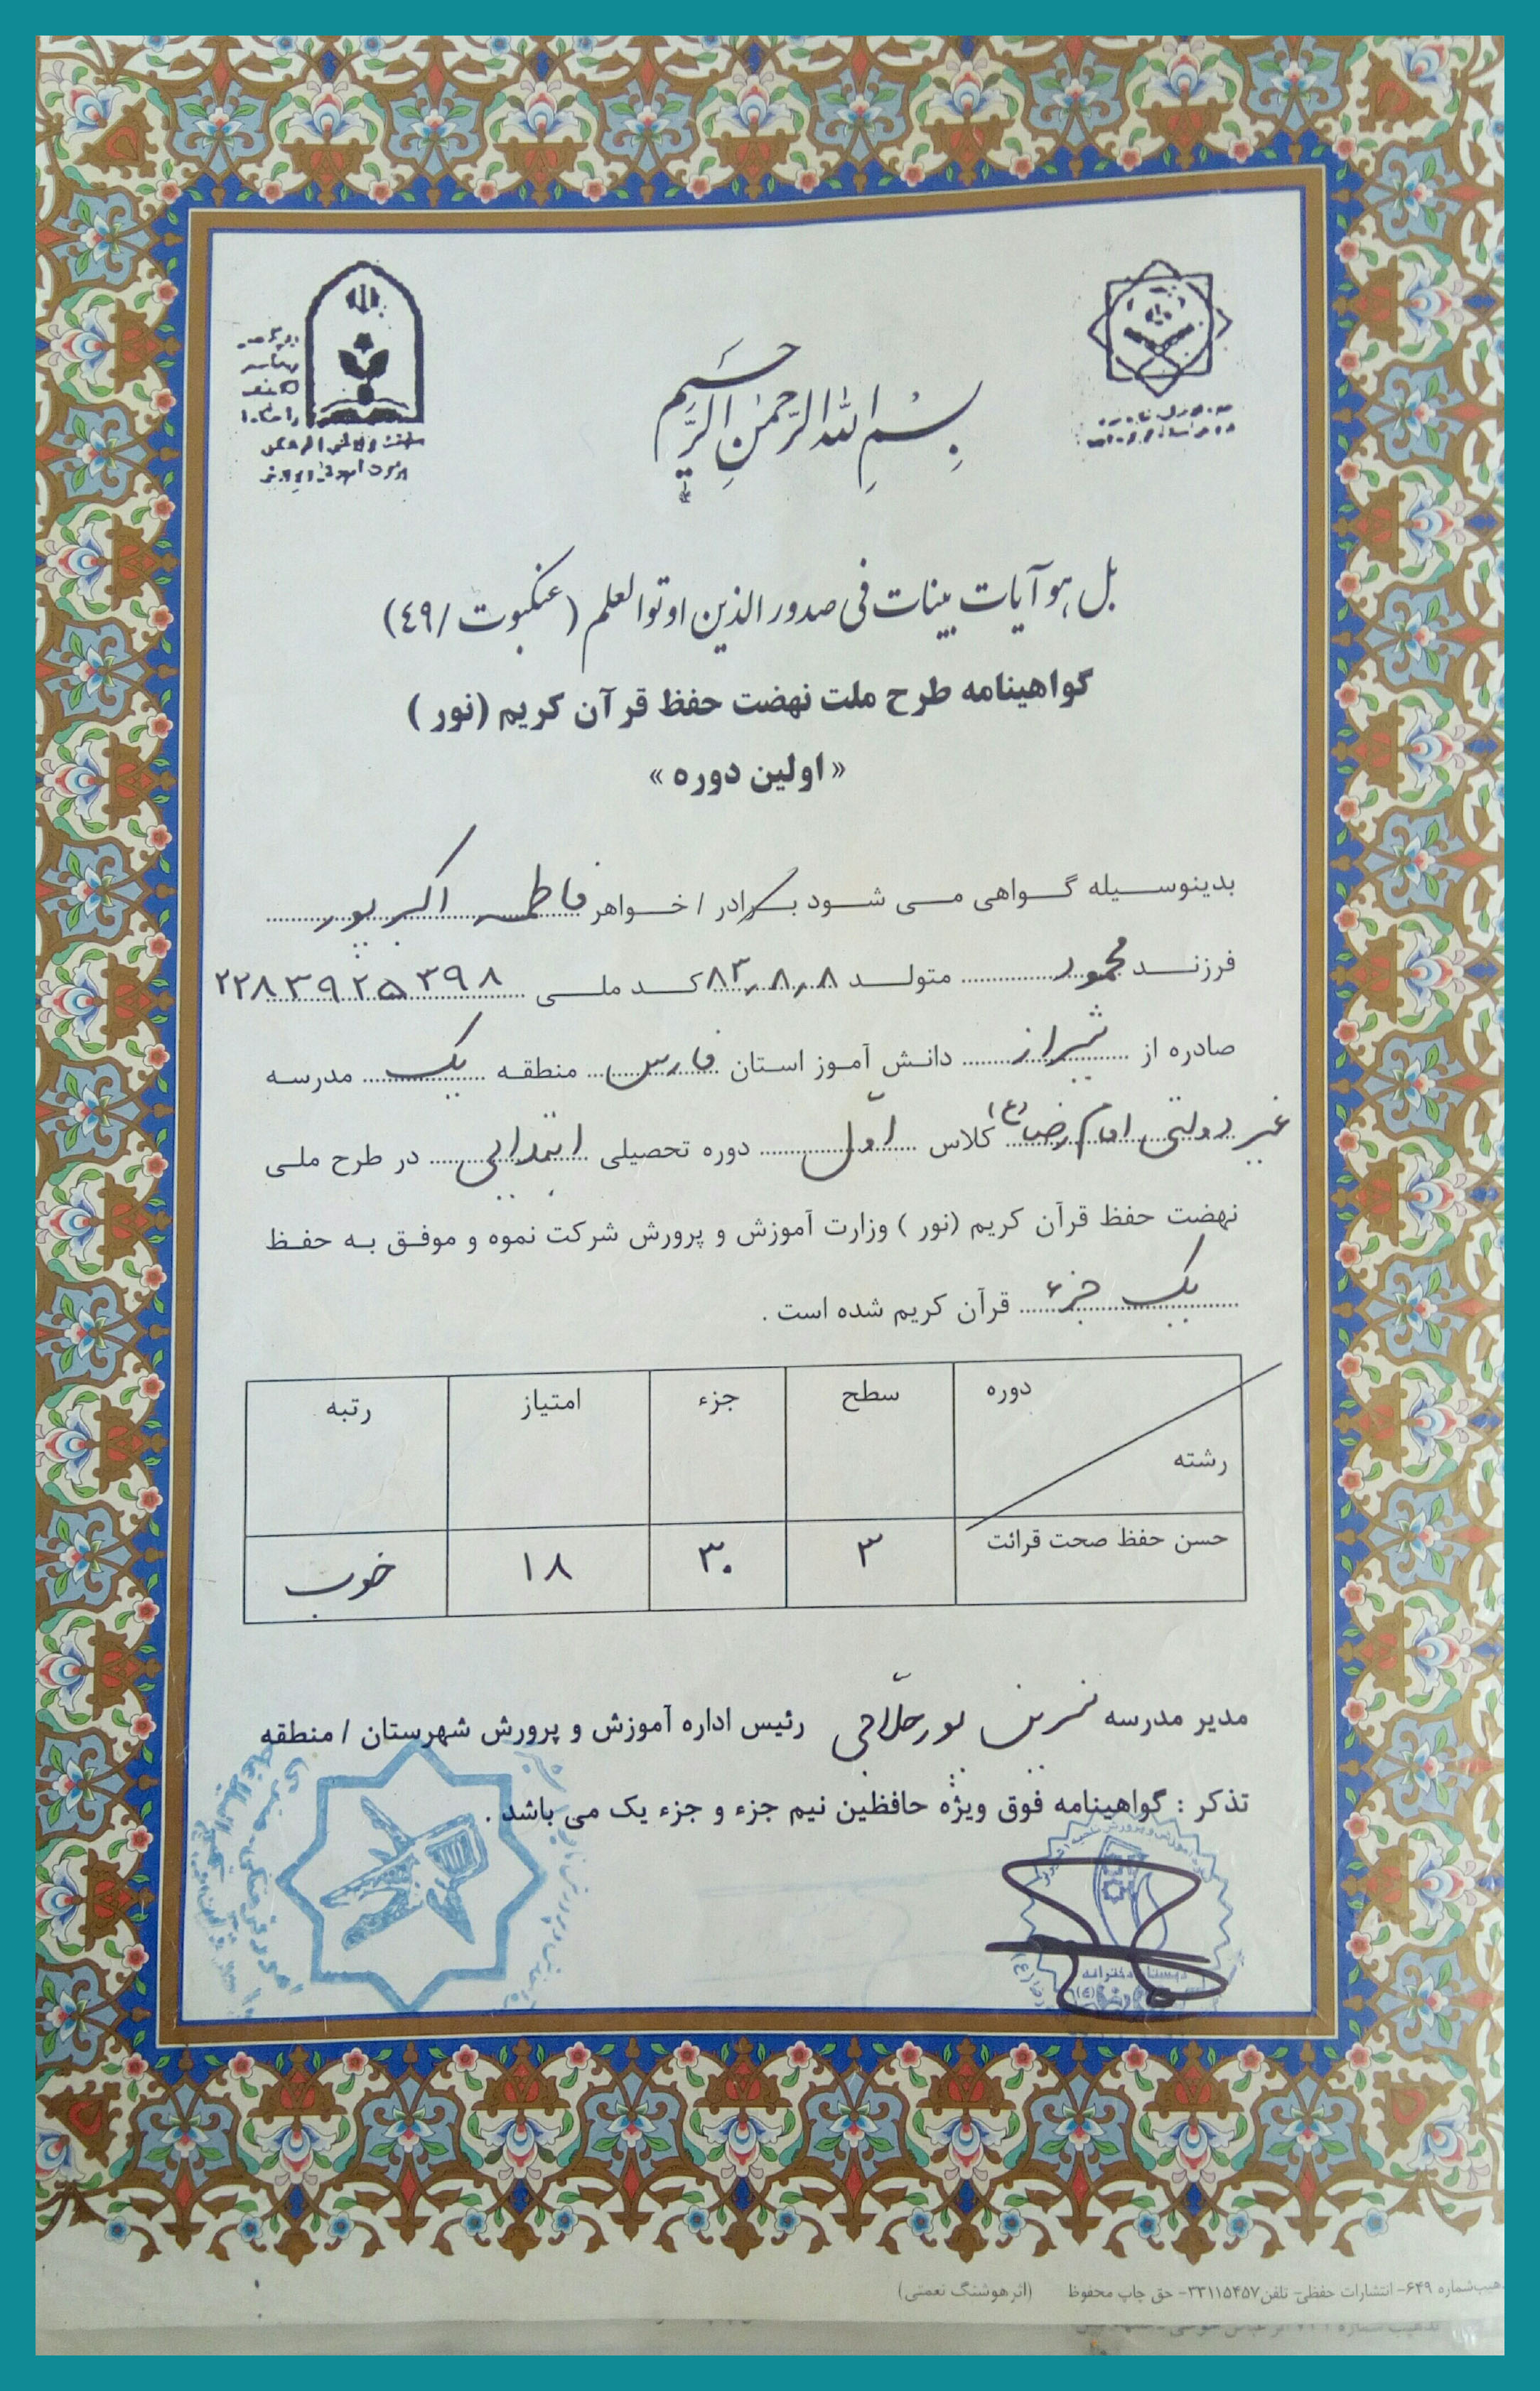 بسم الله الرحمن الرحیم
بل هو آیات بینات فی صدور الذین اوتوا العلم (عنکبوت /٤٩)
گواهینامه طرح ملت نهضت حفظ قرآن کریم (نور )
« اولین دوره »
بدینوسیله گواهی می شود برادر / خواهر فاطمه اکبرپور
فرزند محمود متولد ۸۳٫۸٫۸ کد ملی ۲۲۸۳۹۲۵۳۹۸
صادره از شیراز دانش آموز استان فارس منطقه یک مدرسه
غیر دولتی امام رضا (ع) کلاس اوّل دوره تحصیلی ابتدایی در طرح ملی
نهضت حفظ قرآن کریم (نور ) وزارت آموزش و پرورش شرکت نموه و موفق به حفظ
یک جزء قرآن کریم شده است .
دوره سطح جزء امتیاز رتبه
رشته
حسن حفظ صحت قرائت ۳ ۳۰ ۱۸ خوب
مدیر مدرسه نسرین پورحلّاجی رئیس اداره آموزش و پرورش شهرستان / منطقه
تذکر : گواهینامه فوق ویژه حافظین نیم جزء و جزء یک می باشد .
دخترانه
شماره ۶۴۹- انتشارات حفظی- تلفن ۳۳۱۱۵۴۵۷- حق چاپ محفوظ (اثر هوشنگ نعمتی)